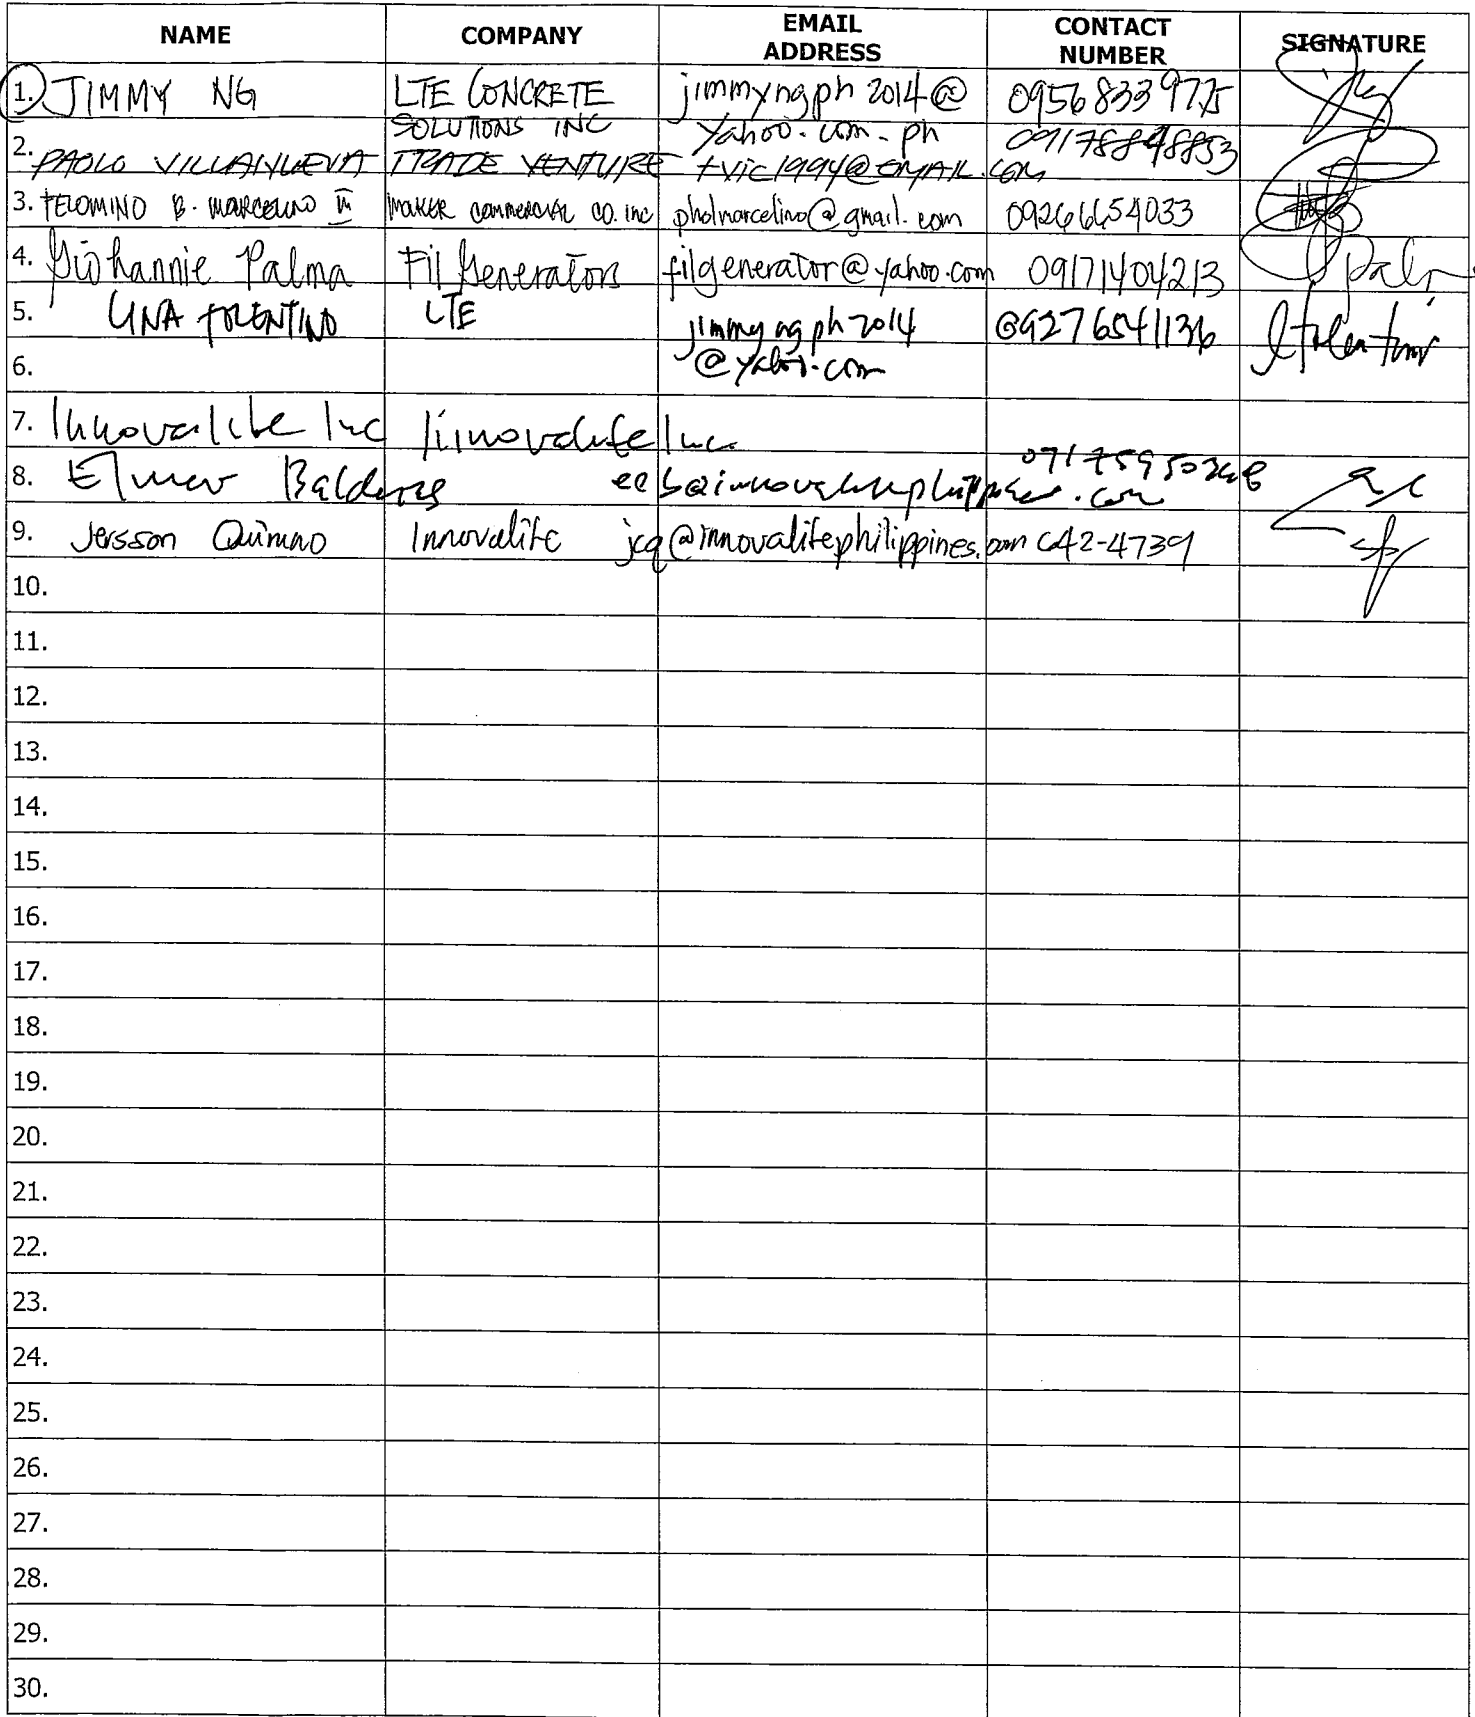 NAME COMPANY EMAIL ADDRESS CONTACT NUMBER SIGNATURE
1. JIMMY NG LTE CONCRETE SOLUTIONS INC jimmyngph2014@yahoo.com.ph
2. PAOLO VILLANUEVA ITRADE VENTURE tvic1994@GMAIL.COM
3. FELOMINO B. MARCELINO III MAKER COMMERCIAL CO. inc pholmarcelino@gmail.com 09266654033
4. Giohannie Palma Fil Generators filgenerator@yahoo.com 09171404213
5. LINA TOLENTINO LTE jimmyngph2014@yahoo.com 09276541136
6.
7. Innovalite Inc Innovalite Inc.
8. Elmer
9. Jersson Innovalite jcq@innovalitephilippines.com 642-4739
10.
11.
12.
13.
14.
15.
16.
17.
18.
19.
20.
21.
22.
23.
24.
25.
26.
27.
28.
29.
30.